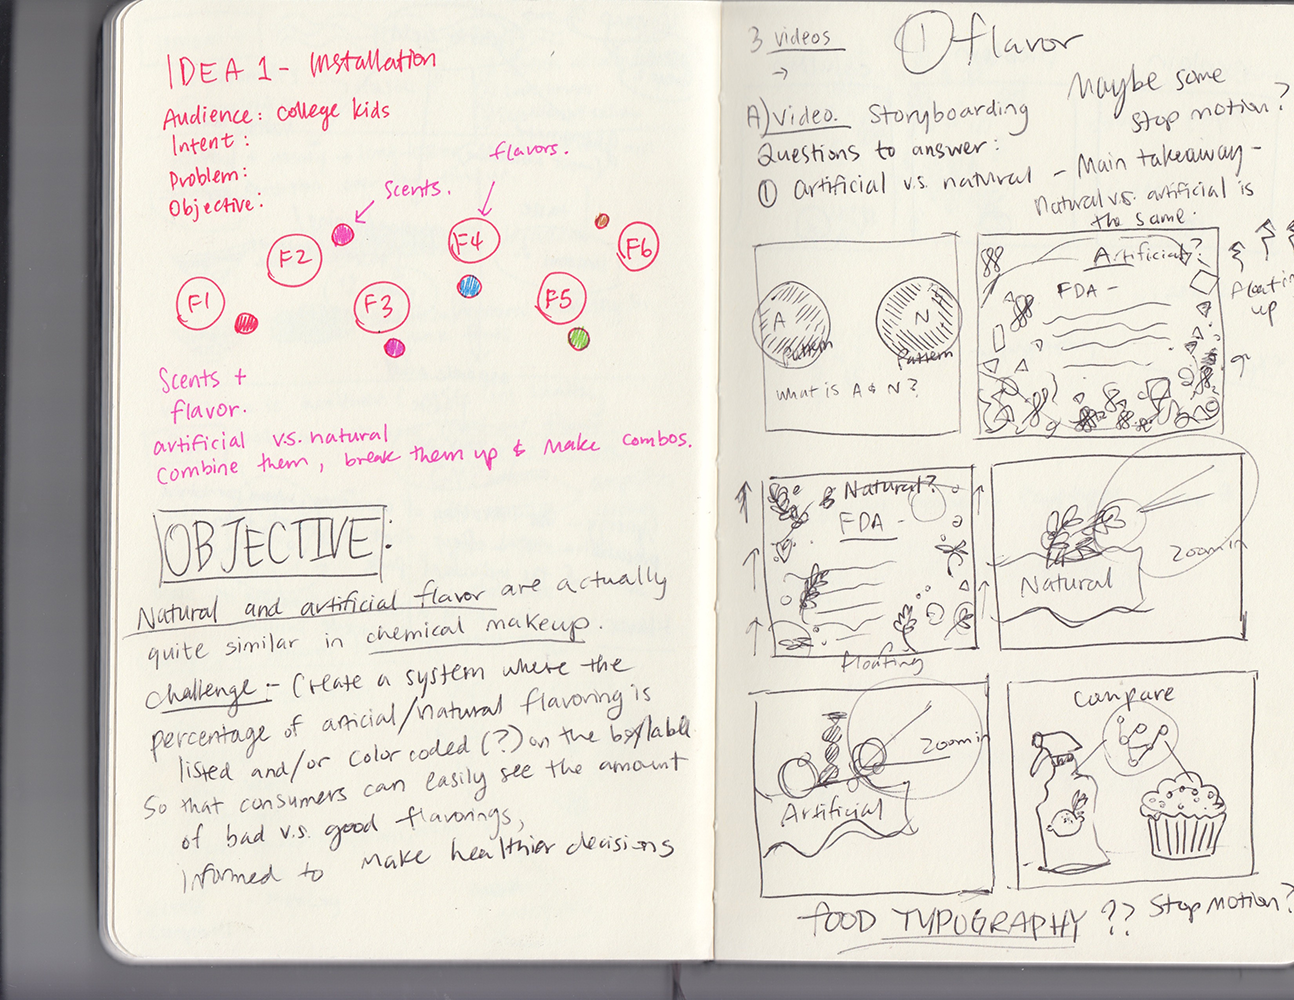 IDEA 1 - Installation
Audience: college kids
Intent:
Problem:
Objective:
Scents.
flavors.
F1
F2
F3
F4
F5
F6
Scents +
flavor.
artificial v.s. natural
combine them, break them up & make combos.
OBJECTIVE:
Natural and artificial flavor are actually
quite similar in chemical makeup.
challenge:- Create a system where the
percentage of articial/natural flavoring is
listed and/or color coded (?) on the box/label
so that consumers can easily see the amount
of bad v.s. good flavorings,
informed to make healthier decisions
3 videos
→
① flavor
Maybe some
stop motion?
A) video. Storyboarding
Questions to answer:
① artificial v.s. natural - Main takeaway -
Natural v.s. artificial is
the same.
A
Pattern
N
Pattern
what is A & N?
Artificial?
FDA -
floating
up
& Natural?
FDA -
floating
Natural
Zoom in
Artificial
Zoom in
Compare
FOOD TYPOGRAPHY ??
Stop motion?